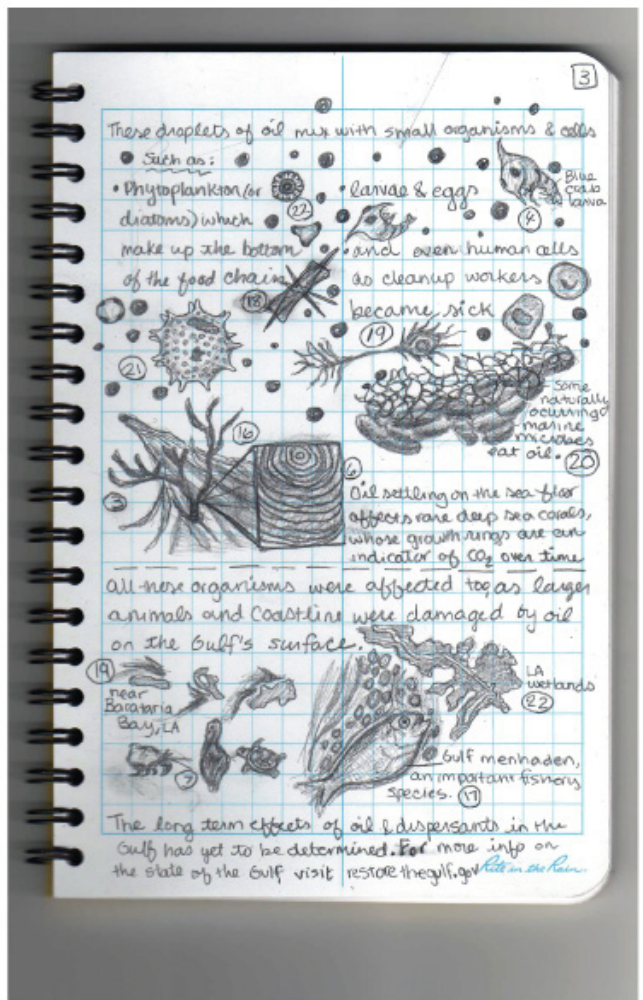 3
These droplets of oil mix with small organisms & cells
Such as:
• Phytoplankton (or
diatoms) which
make up the bottom
of the food chain
22
18
21
• larvae & eggs
Blue
crab
larva
4
• and even human cells
as cleanup workers
became sick
19
Some
naturally
ocurring
marine
microbes
eat oil.
20
16
6
3
Oil settling on the sea floor
affects rare deep sea corals,
whose growth rings are an
indicator of CO2 over time
All these organisms were affected too, as larger
animals and coastline were damaged by oil
on the Gulf's surface.
19
near
Barataria
Bay, LA
LA
wetlands
22
Gulf menhaden,
an important fishery
species. 17
The long term effects of oil & dispersants in the
Gulf has yet to be determined. For more info on
the state of the Gulf visit restorethegulf.gov
Rite in the Rain